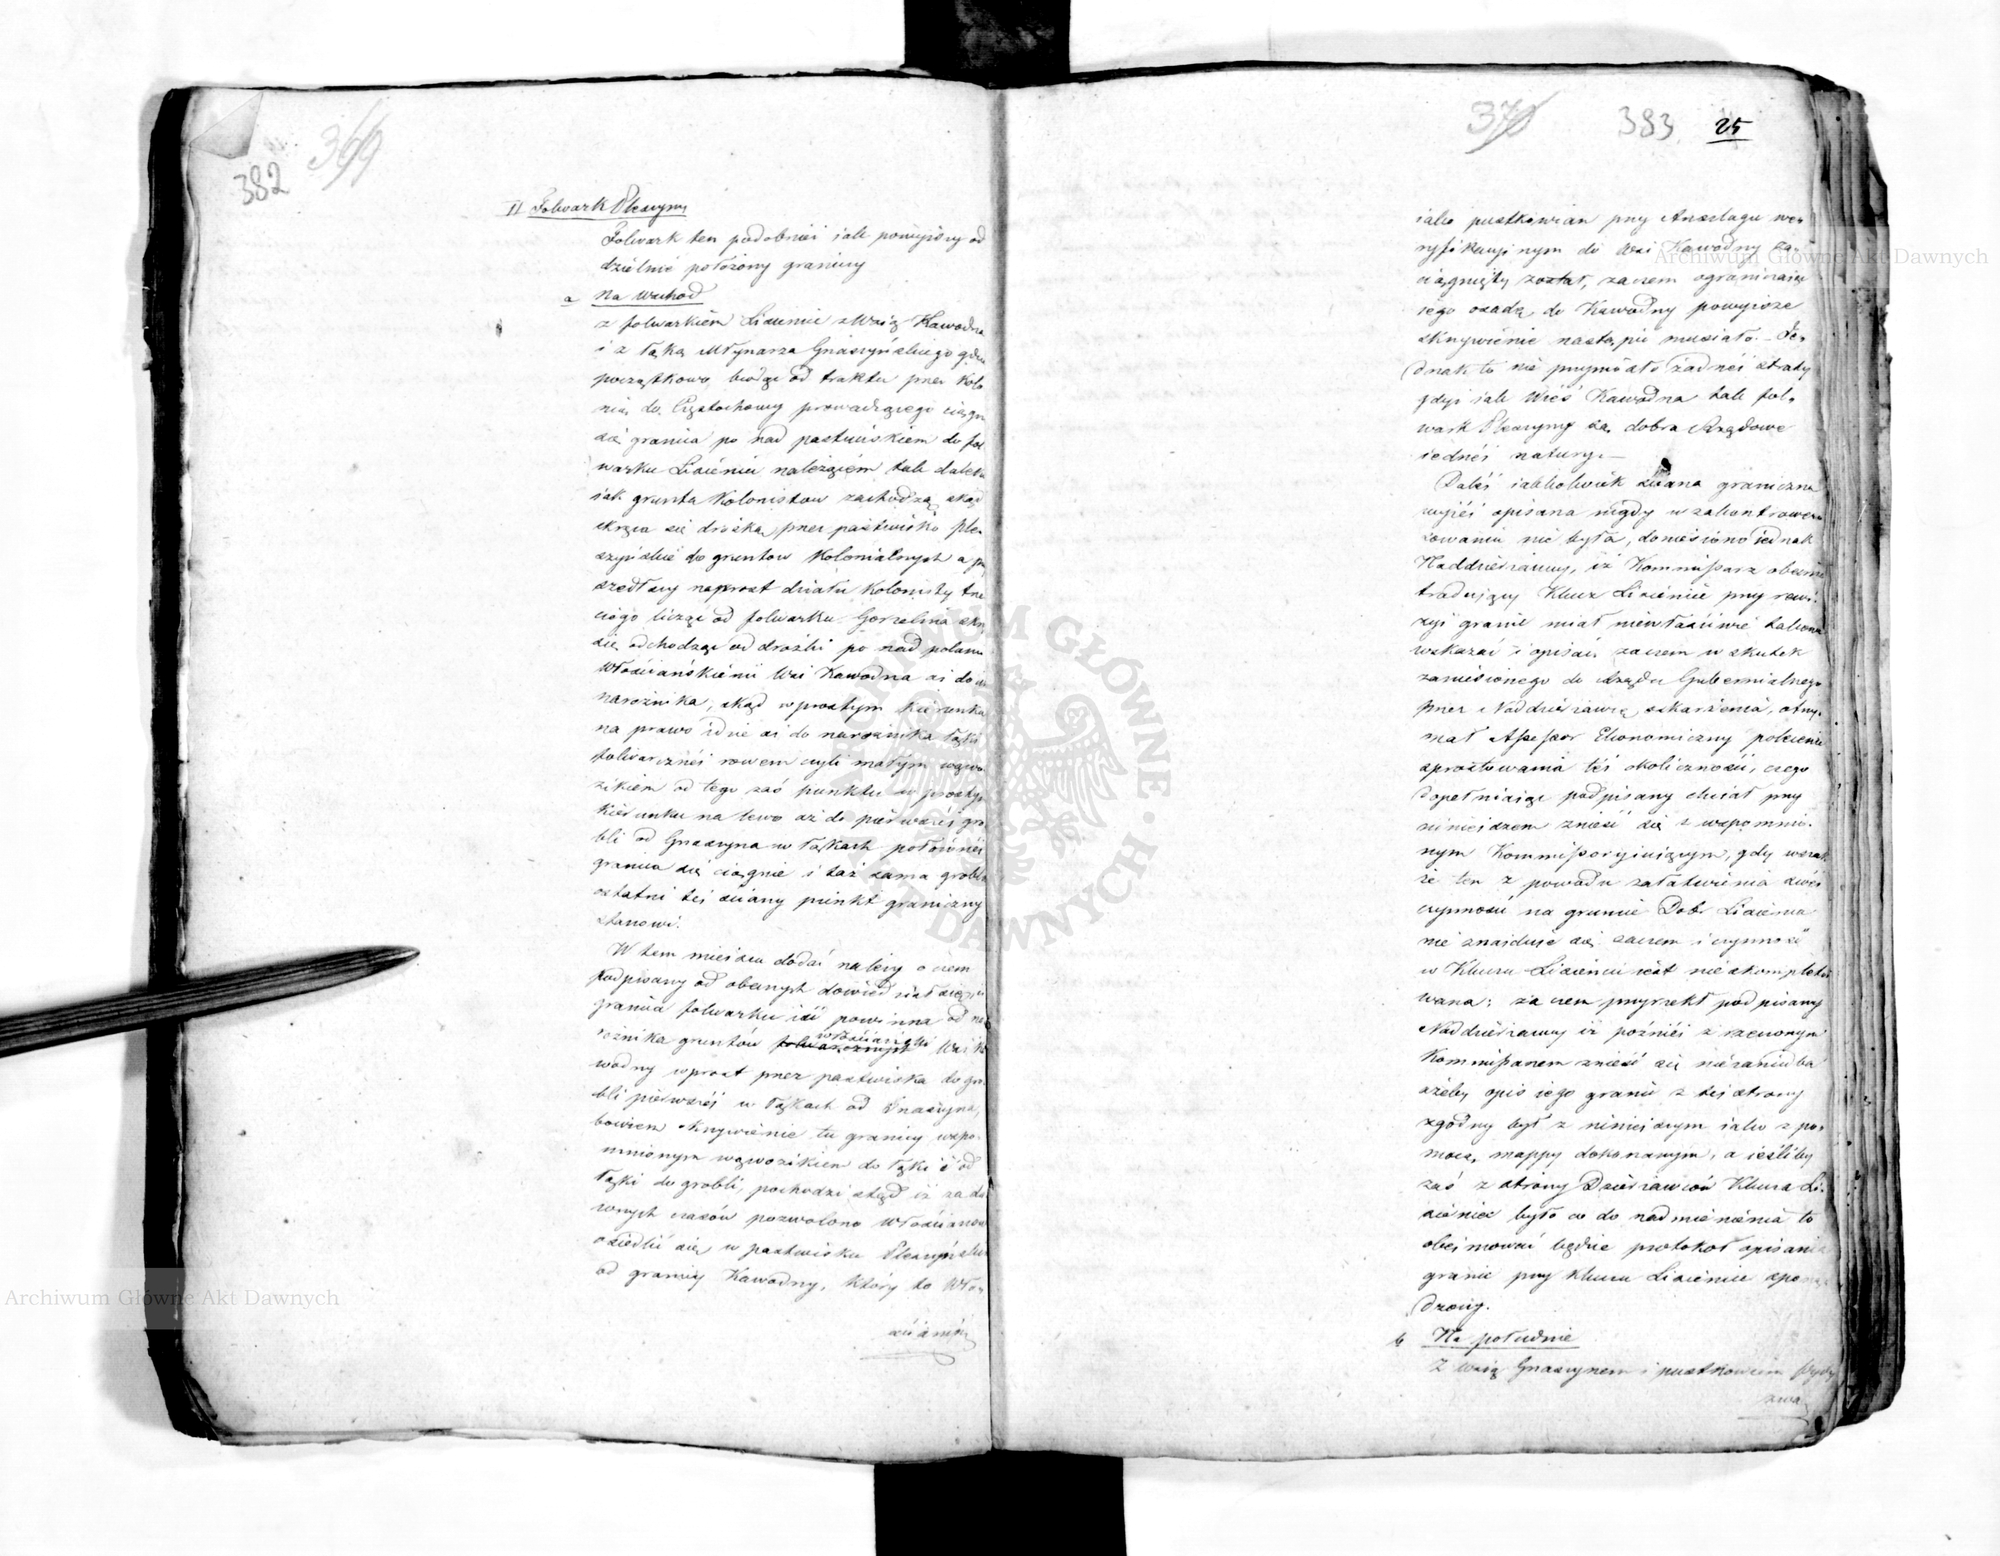 382 369
II Folwark Pleszyny
Folwark ten podobnież jak powyższy od
dzielnie położony graniczy
a Na wschód
z folwarkiem Lisieniec z Wsią Kawodrza
i z łąką Młynarza Gnaszyńskiego gdzie
początkowo biorąc od traktu przez Kolo
nią do Częstochowy prowadzącego ciągnie
się granica po nad pastwiskiem do fol
warku Lisieniec należącem tak daleko
jak grunta Kolonistów zachodzą skąd
skręca się dróżką przez pastwisko Ple-
szyńskie do gruntow Kolonialnych a
szedłszy naprost działu Kolonisty trze
ciego licząc od folwarku Gorzelnia
się odchodząc od dróżki po nad polami
Włościańskiemi Wsi Kawodrza aż do
narożnika, skąd w prostym kierunku
na prawo idzie aż do narożnika łąki
folwarcznéj rowem czyli małym wąwo
zikiem od tego zaś punktu w prostym
kierunku na lewo aż do pierwszéj gro
bli od Gnaszyna w łąkach położonéj
granica się ciągnie i taż sama grobla
ostatni téj ściany punkt graniczny
stanowi.
W tem miejscu dodać należy o czem
podpisany od obecnych dowiedział się
granica folwarku iść powinna od na
rożnika gruntów folwarcznych włościańskich Wsi Ka
wodrzy wprost przez pastwiska do gro
bli pierwszéj w łąkach od Gnaszyna,
bowiem skrzywienie tu granicy wspo-
mnionym wąwozikiem do łąki i od
łąki do grobli, pochodzi stąd iż za da
wnych czasów pozwolono Włościanowi
osiedlić się w pastwisku Pleszyńskim
od granicy Kawodrzy, który to Wło-
ścianin
370 383 25
jako pustkowian przy Anszlagu we-
ryfikacyjnym do Wsi Kawodrzy za-
ciągnięty został, zaczem ograniczając
jego osadę do Kawodrzy powyższe
skrzywienie nastąpić musiało. Je-
dnak to nie przyniosło żadnéj straty
gdyż jak Wieś Kawodrza tak fol-
wark Pleszyny są dobra Rządowe
jednéj natury.—
Daléj jakkolwiek ściana graniczna
wyżéj opisana nigdy w zakontrower-
sowaniu nie była, doniesiono jednak
Naddzierżawcy, iż Kommissarz obecnie
tradujący Klucz Lisieniec przy rewi-
zyi granic miał niewłaściwie takowe
wskazać i opisać, zaczem w skutek
zaniesionego do Rządu Gubernialnego
przez Naddzierżawcę oskarżenia, otrzy-
mał Assessor Ekonomiczny polecenie
sprostowania téj okoliczności, czego
dopełniając podpisany chciał przy
niniejszem znieść się z wspomnio-
nym Kommissoryjnającym, gdy wszak
że ten z powodu załatwienia swéj
czynności na gruncie Dobr Lisieniec
nie znajduje się zaczem i czynność
w Kluczu Lisieniec jest nieskompleto
wana; za czem przyrzekł podpisany
Naddzierżawcy iż późniéj z rzeczonym
Kommissarzem znieść się niezaniedba
ażeby opis jego granic z téj strony
zgodny był z niniejszym jako z po-
mocą mappy dokonanym, a jeśliby
zaś z strony Dzierżawców Klucza Li-
sieniec było co do nadmienienia to
obejmować będzie protokoł opisania
granic przy Kluczu Lisieniec sporzą
dzony.
b Na południe
Z wsią Gnaszynem i pustkowiem
zwa
Archiwum Główne Akt Dawnych
Archiwum Główne Akt Dawnych
ARCHIWUM GŁÓWNE AKT DAWNYCH